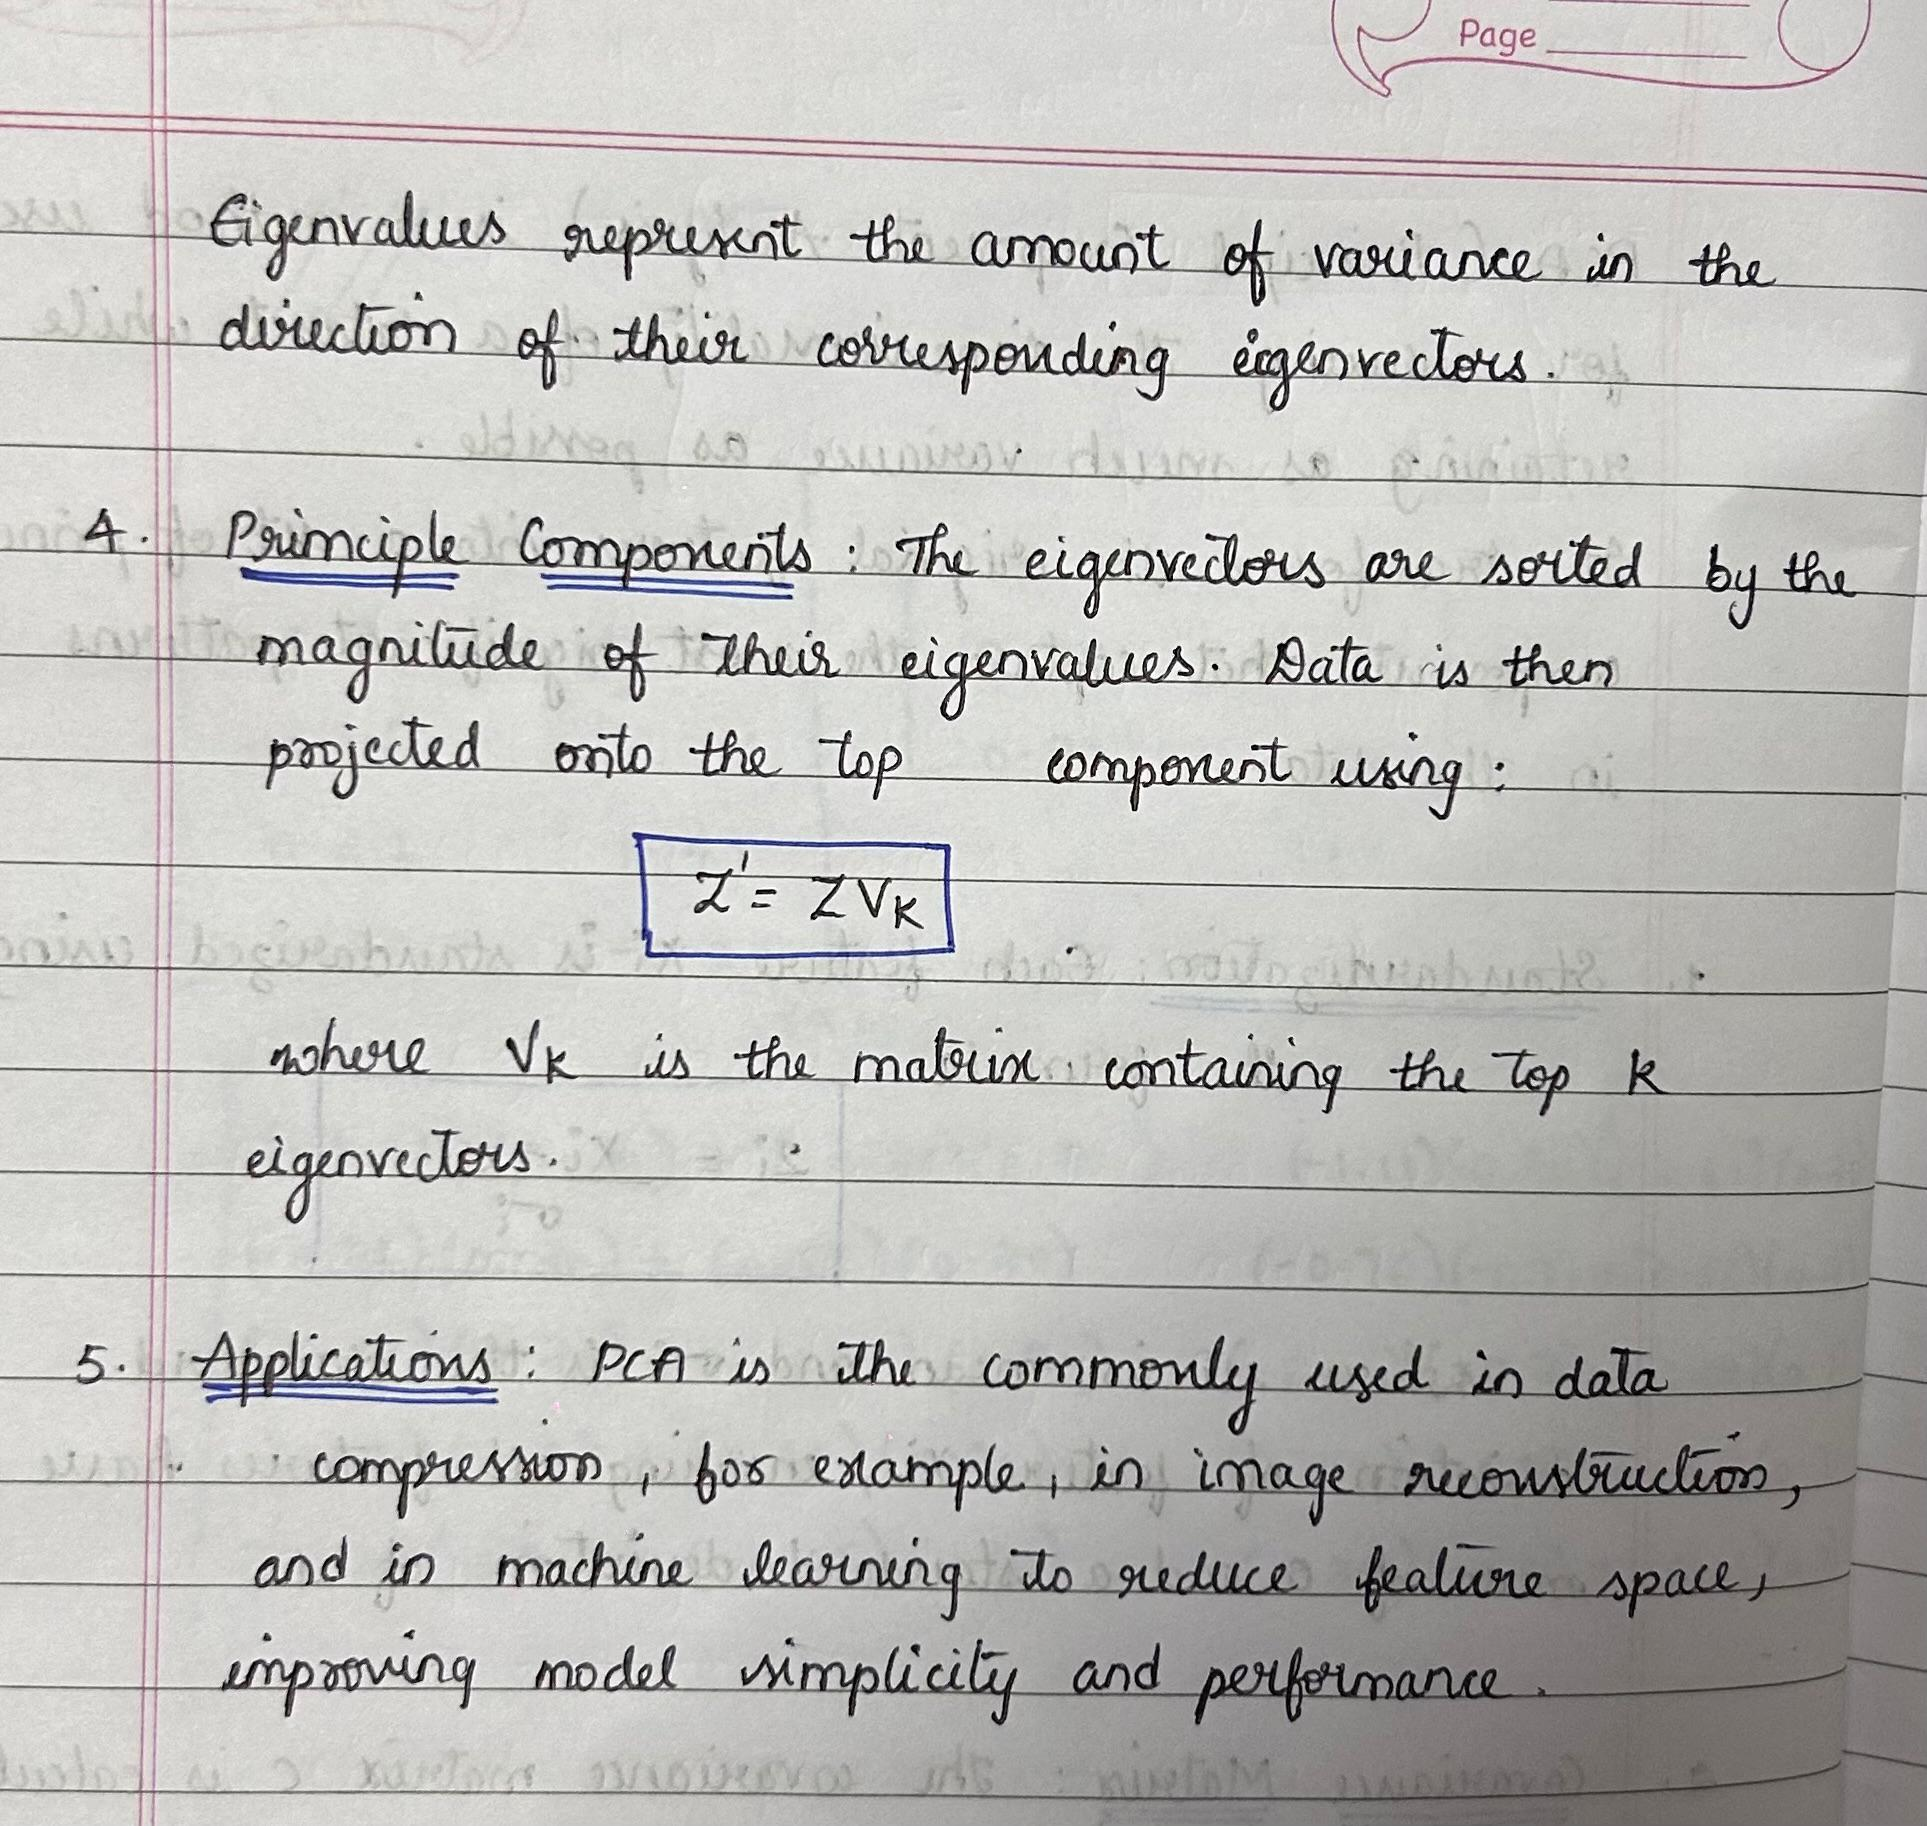 Page
Eigenvalues represent the amount of variance in the
direction of their corresponding eigenvectors.
4. Principle Components : The eigenvectors are sorted by the
magnitude of their eigenvalues. Data is then
projected onto the top component using :
Z' = ZVk
where Vk is the matrix containing the top k
eigenvectors.
5. Applications : PCA is the commonly used in data
compression, for example, in image reconstruction,
and in machine learning to reduce feature space,
improving model simplicity and performance.